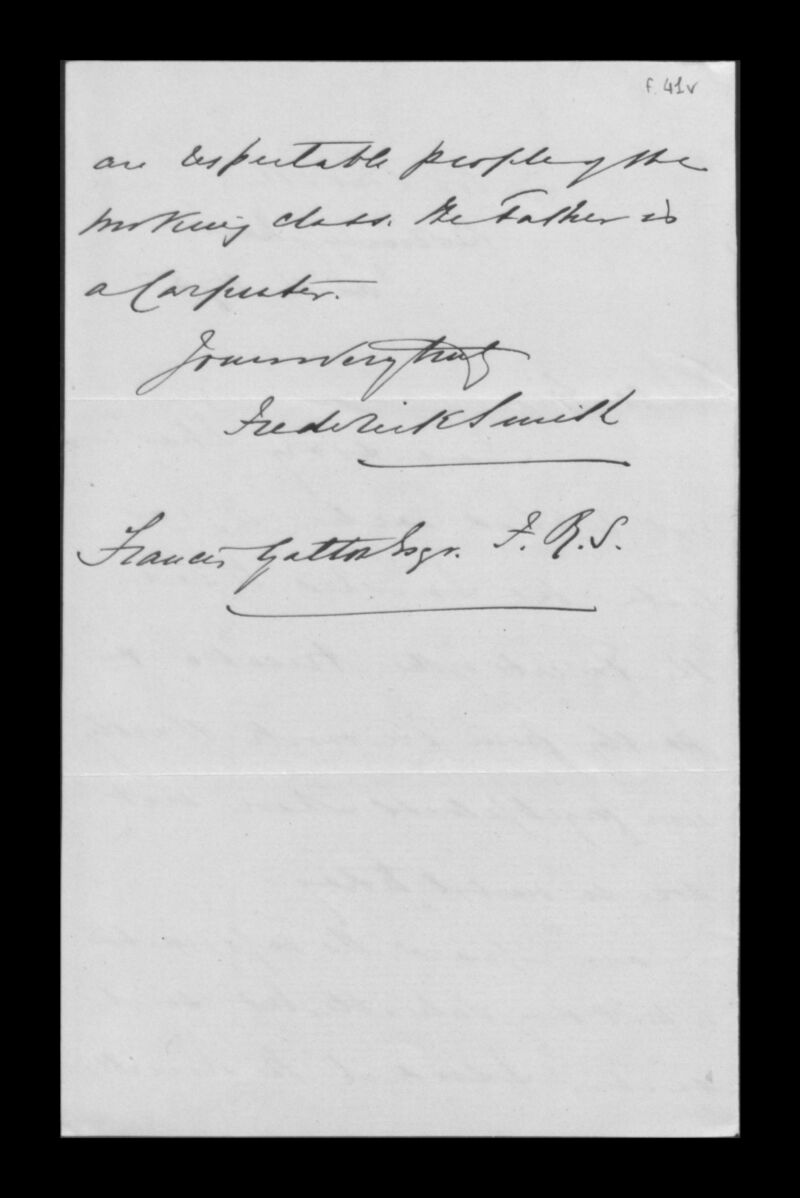 f. 41v
are respectable people of the
working class. The Father is
a Carpenter.
Yours very truly
Frederick Smith
Francis Galton Esqr. F. R. S.